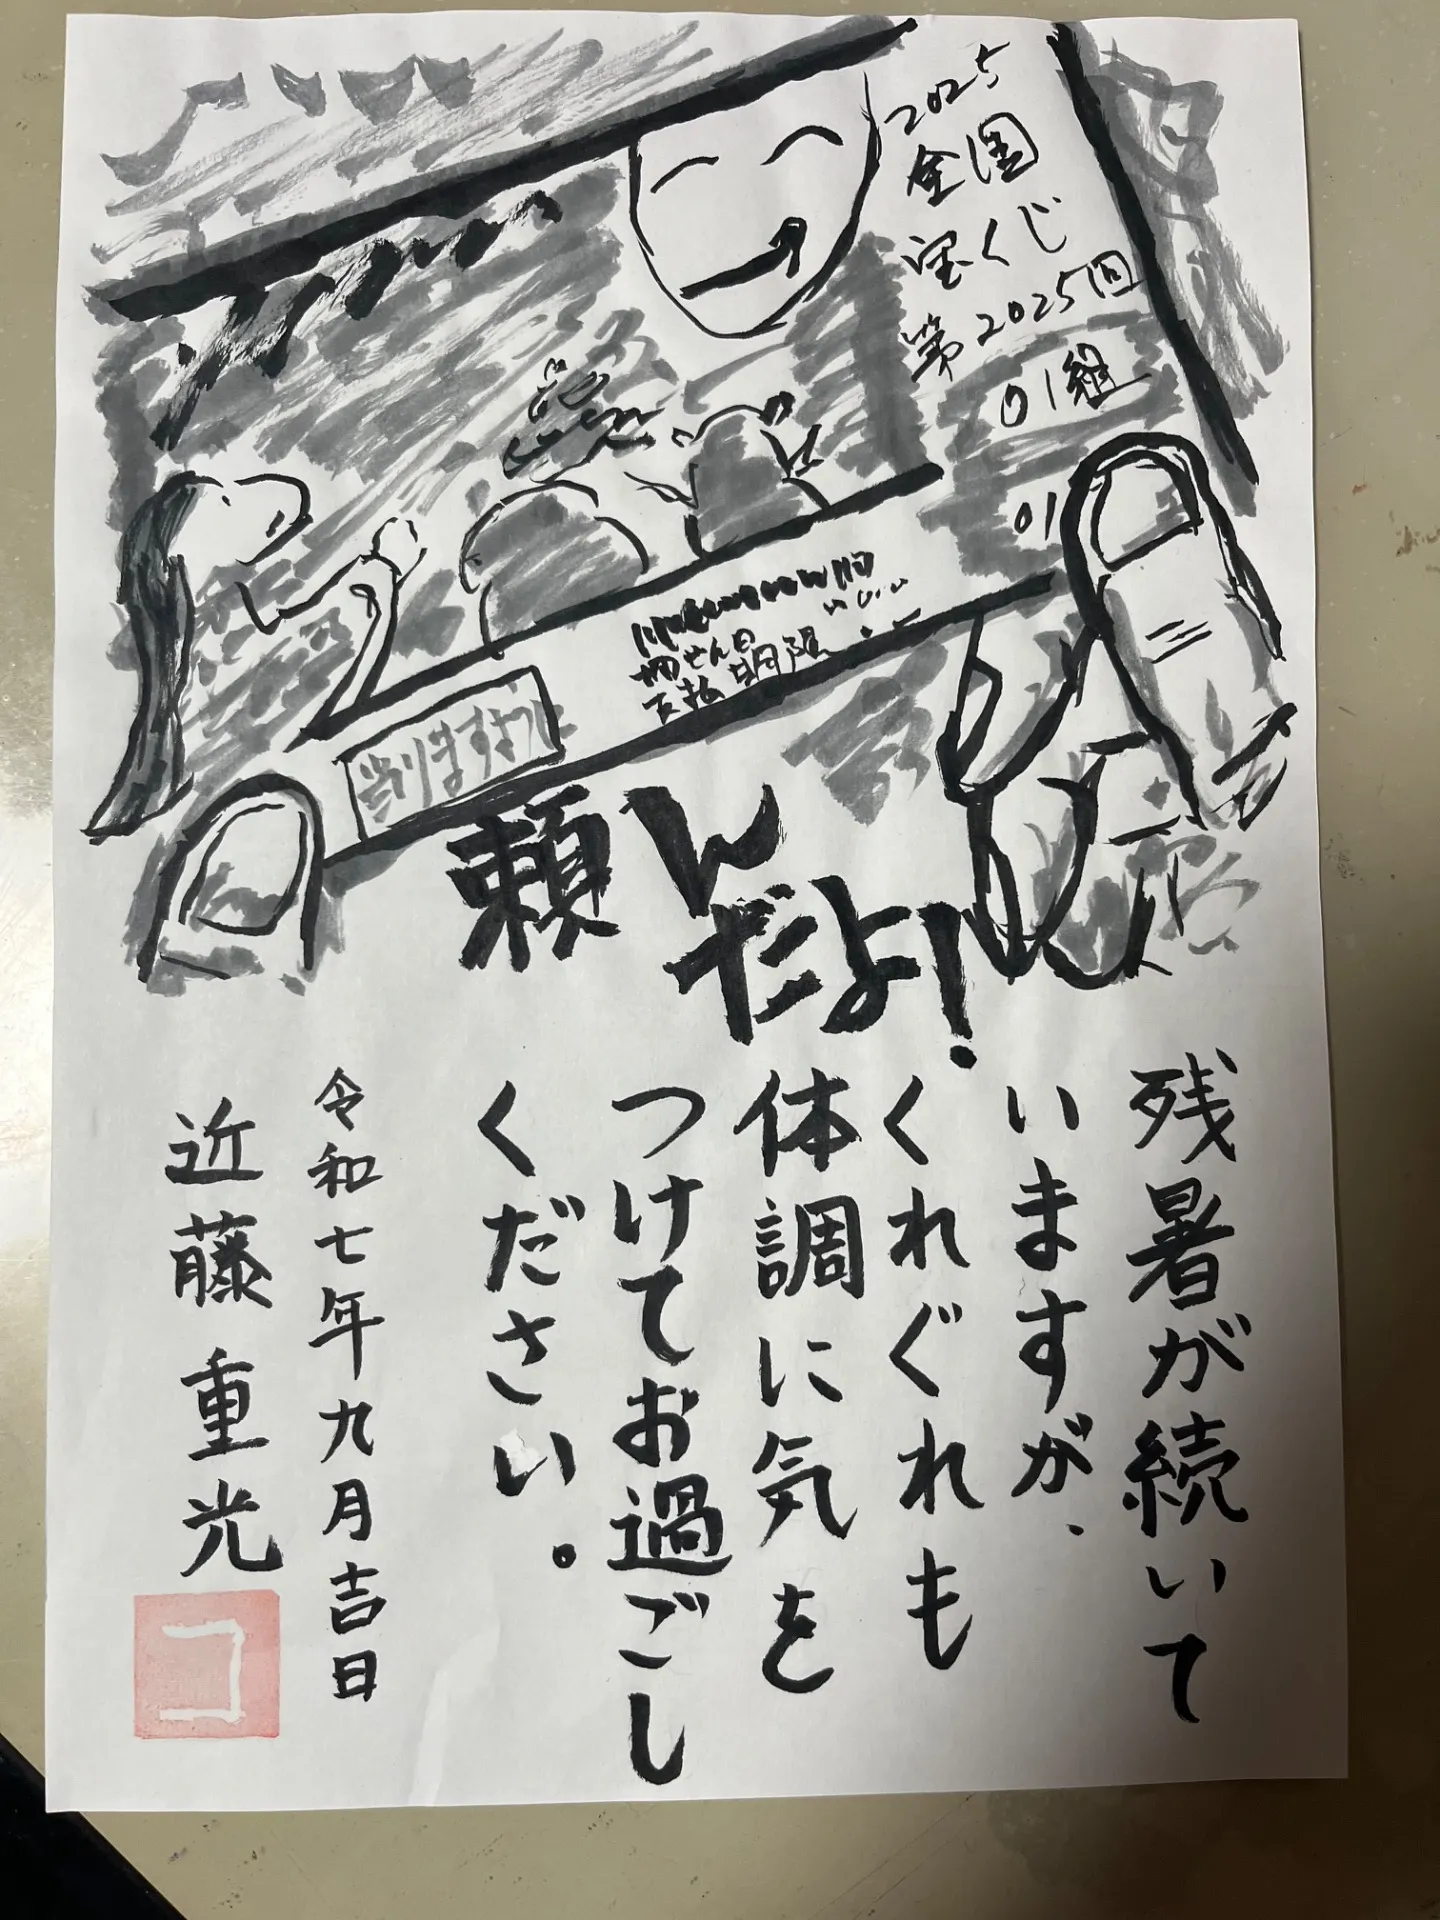 2025
全国
宝くじ
第2025回
01組
01
当せん日
支払期限
当りますように
頼んだよ!
残暑が続いて
いますが、
くれぐれも
体調に気を
つけてお過ごし
ください。
令和七年九月吉日
近藤重光
コ